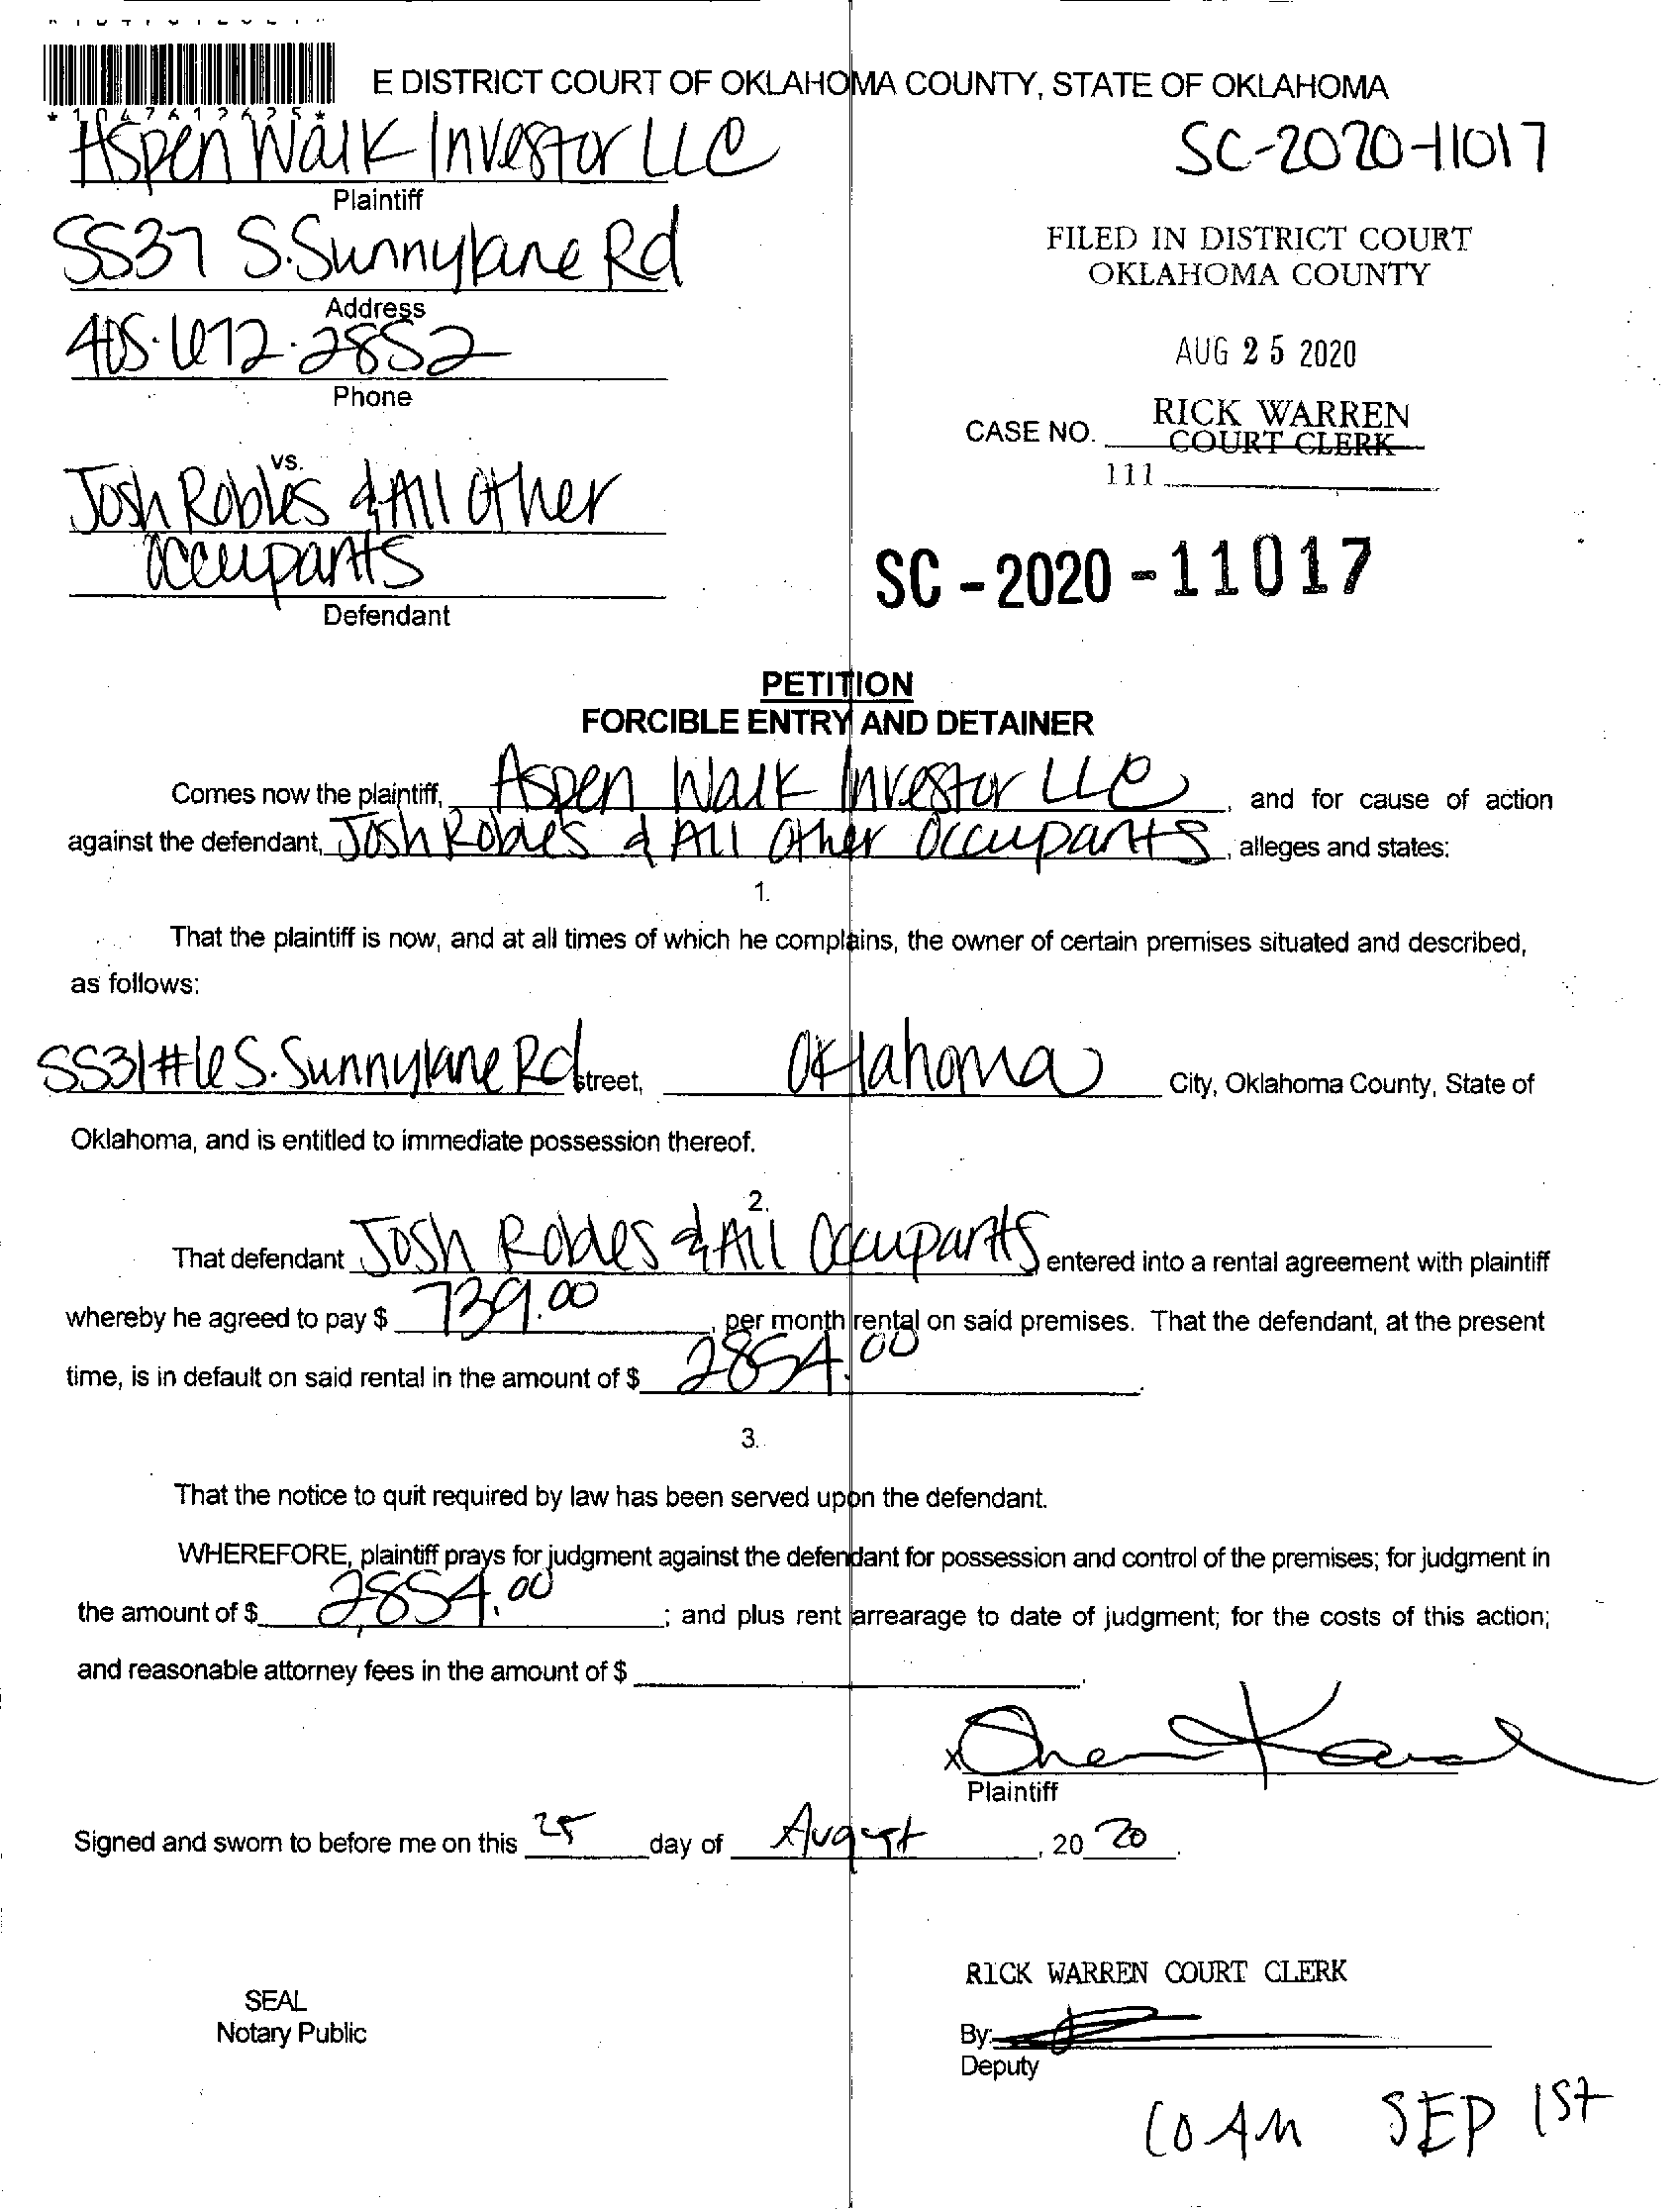 *1047612625*
E DISTRICT COURT OF OKLAHOMA COUNTY, STATE OF OKLAHOMA
Aspen Walk Investor LLC
SC-2020-11017
Plaintiff
5537 S. Sunnylane Rd
FILED IN DISTRICT COURT
OKLAHOMA COUNTY
Address
405.672.2852
AUG 25 2020
Phone
RICK WARREN
CASE NO. COURT CLERK
111
vs.
Josh Robles & All Other
Occupants
SC-2020-11017
Defendant
PETITION
FORCIBLE ENTRY AND DETAINER
Comes now the plaintiff, Aspen Walk Investor LLC, and for cause of action
against the defendant, Josh Robles & All Other Occupants, alleges and states:
1.
That the plaintiff is now, and at all times of which he complains, the owner of certain premises situated and described,
as follows:
5531 #6 S. Sunnylane Rd street, Oklahoma City, Oklahoma County, State of
Oklahoma, and is entitled to immediate possession thereof.
2.
That defendant Josh Robles & All Occupants entered into a rental agreement with plaintiff
whereby he agreed to pay $ 739.00, per month rental on said premises. That the defendant, at the present
time, is in default on said rental in the amount of $ 2854.00.
3.
That the notice to quit required by law has been served upon the defendant.
WHEREFORE, plaintiff prays for judgment against the defendant for possession and control of the premises; for judgment in
the amount of $ 2854.00; and plus rent arrearage to date of judgment; for the costs of this action;
and reasonable attorney fees in the amount of $ .
x
Plaintiff
Signed and sworn to before me on this 25 day of August, 20 20.
RICK WARREN COURT CLERK
SEAL
Notary Public
By:
Deputy
10 AM SEP 1st